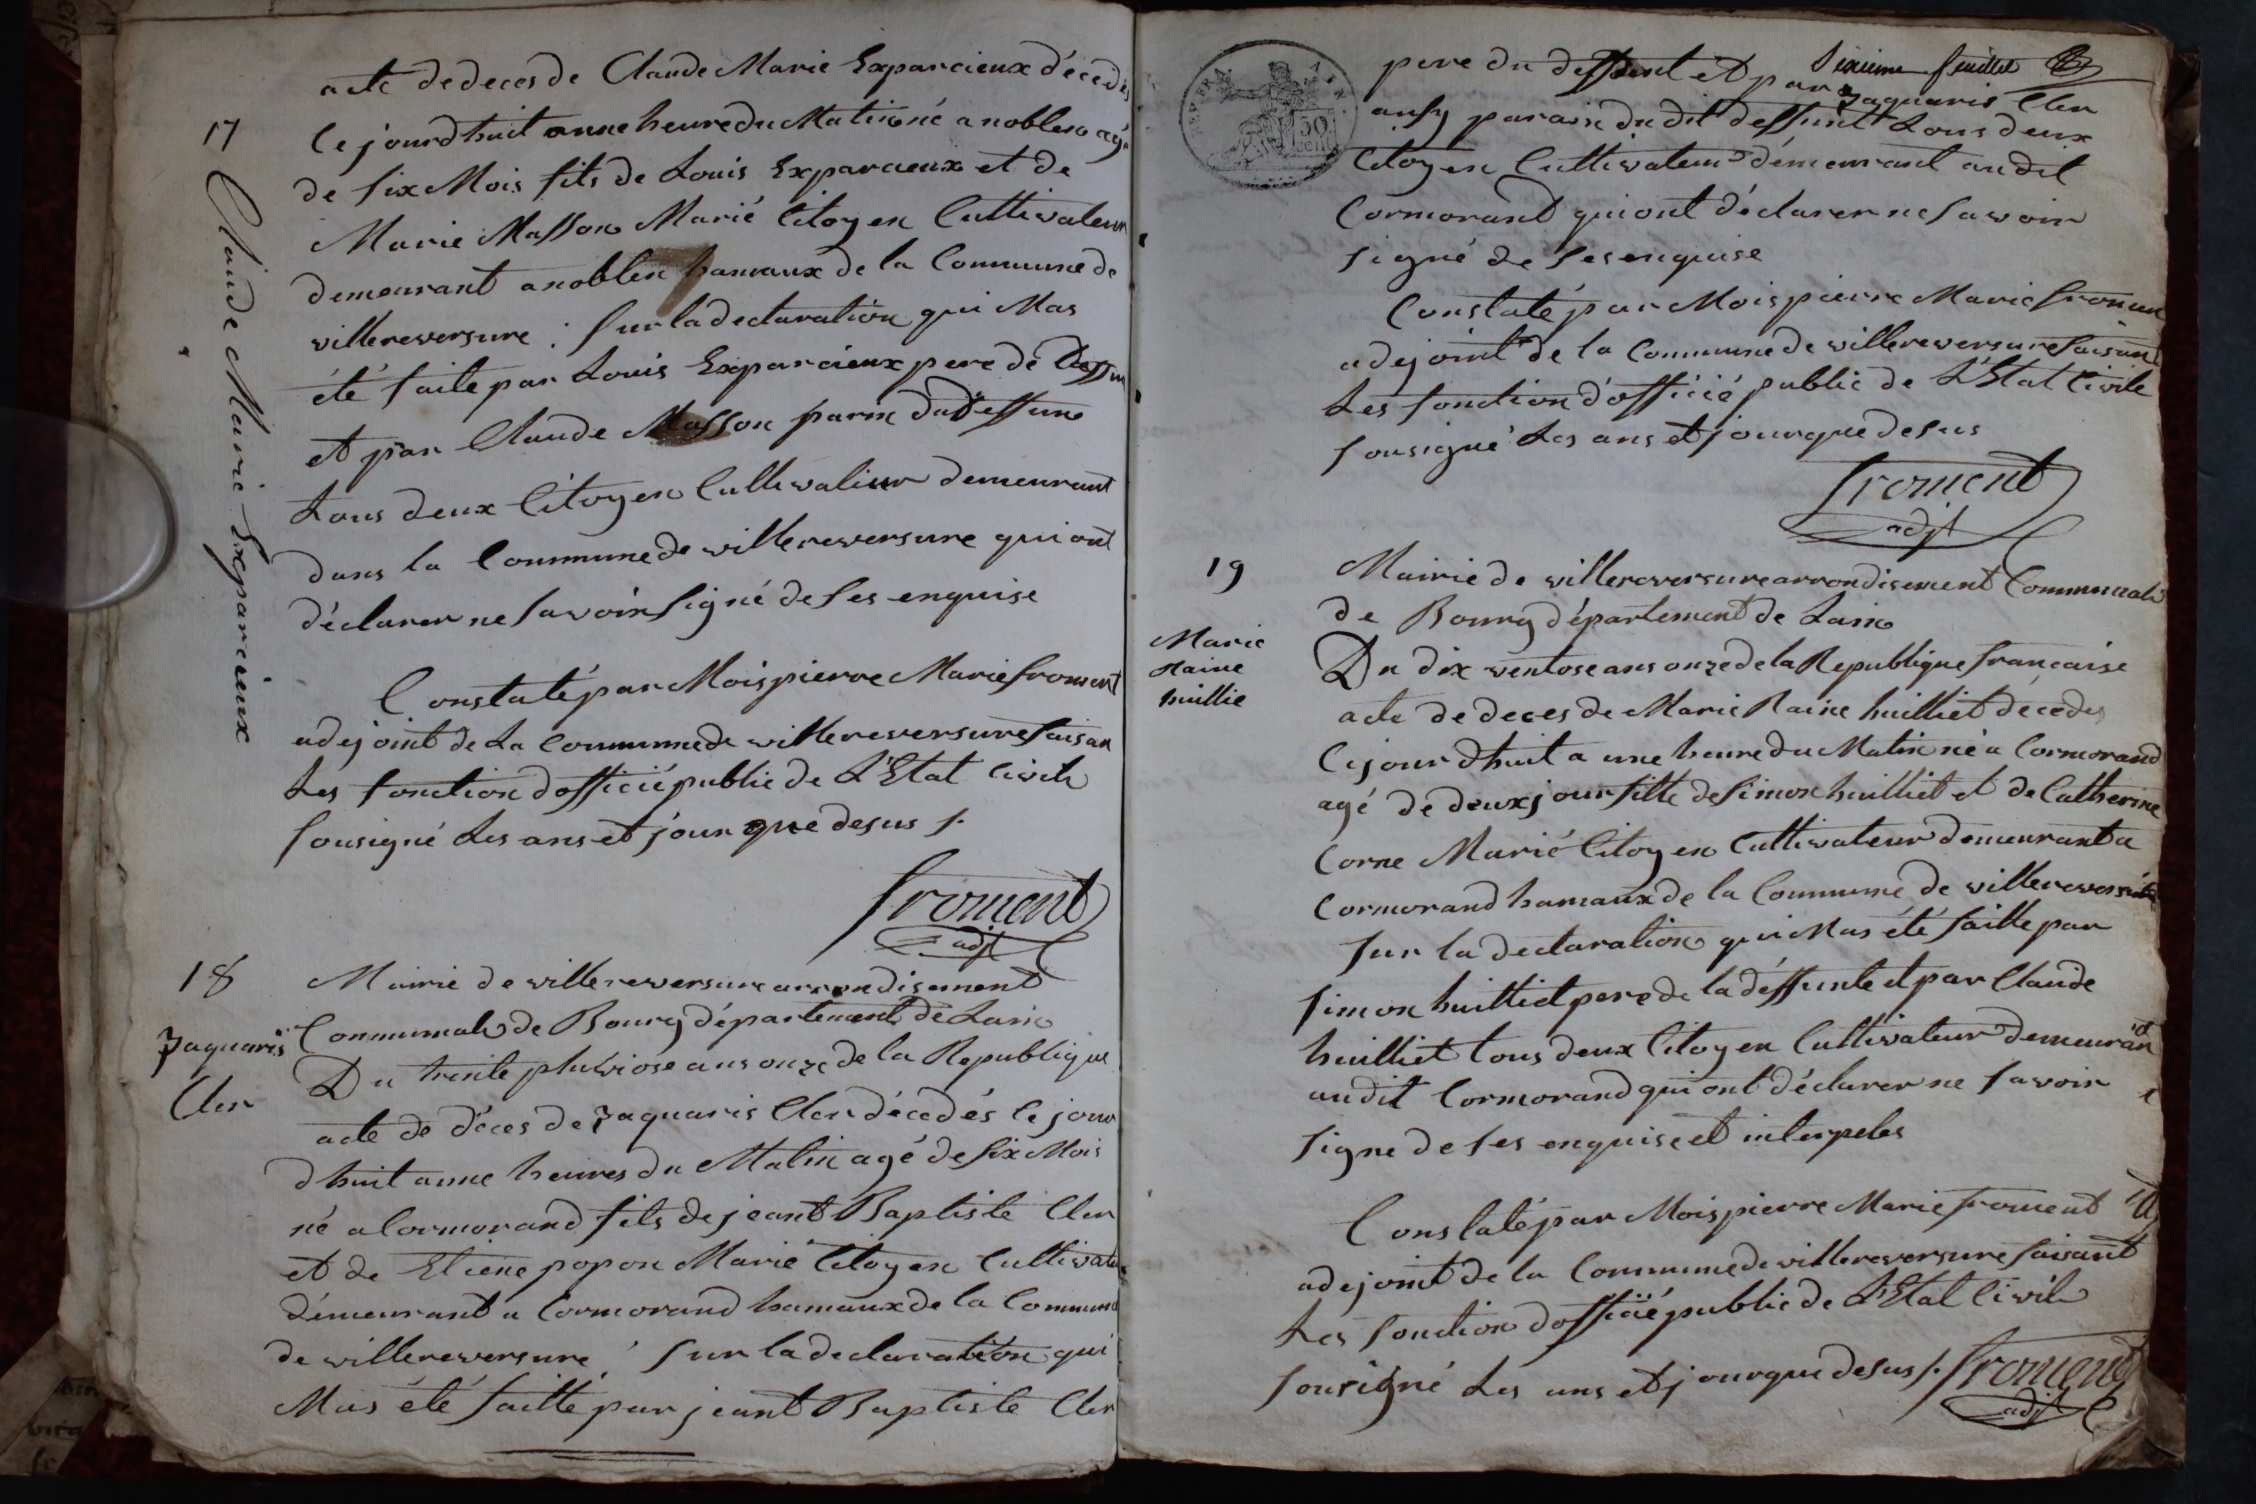 17
Claude Marie Exparcieux
acte de deces de Claude Marie Exparcieux décedés
Ce jourdhuit a une heure du Matin né a noblen agé
de six Mois fils de Louis Exparcieux et de
Marie Masson Marié Citoyen Cultivateur
demeurant a noblen hamaux de la Commune de
villereversure. Sur la declaration qui Mas
été faite par Louis Exparcieux pere de
et par Claude Masson parin du deffunc
tous deux Citoyen Cultivatieur demeurant
dans la Commune de villereversure qui ont
déclarer ne savoir signé de ses enquise
Constaté par Mois pierre Marie froment
adejoint de La Commune de villereversure faisan
Les fonction dofficié public de L'Etat Civile
sousigné Les ans et jour que desus /.
froment
adjt
18
Jaquaris
Cler
Mairie de villereversure arrondisement
Communale de Bourg département de Lain
Du trente pluviose ans onze de la Republique
acte de déces de Jaquaris Cler décedés Ce jour
dhuit a une heures du Matin agé de six Mois
né a Cormorand fils de jeant Baptiste Cler
et de Etiene popon Marié Citoyen Cultivateu
démeurant a Cormorand hamaux de la Commune
de villereversure. Sur la declaration qui
Mas été faitte par jeant Baptiste Cler
Sixieme feuillet
pere du deffunt et par Jaquaris Cler
ausy parain du dit deffunt tous deux
Citoyen Cultivateur démeurant au dit
Cormorand qui ont déclarer ne savoir
signé de ses enquise
Constaté par Mois pierre Marie fromen
adejoint de la Commune de villereversure faisant
Les fonction d'officié public de L'Etat Civile
sousigné Les ans et jour que desus
froment
adjt
19
Marie
Raine
huillie
Mairie de villereversure arrondisement Communale
de Bourg département de Lain
Du dix ventose ans onze de la Republique francaise
acte de deces de Marie Raine huilliet décedes
Ce jourdhuit a une heure du Matin né a Cormorand
agé de deux jour fille de Simon huilliet et de Catherine
Corne Marié Citoyen Cultivateur demeurant a
Cormorand hamaux de la Commune de villereversure
Sur la declaration qui Mas été faitte par
Simon huilliet pere de la deffunte et par Claude
huilliet tous deux Citoyen Cultivateur demeurant
au dit Cormorand qui ont déclarer ne savoir
signe de ses enquise et interpeles
Constaté par Mois pierre Marie froment
adejoint de la Commune de villereversure faisant
Les fonction dofficié public de L'Etat Civile
sousigné Les ans et jour que desus /. froment
adjt